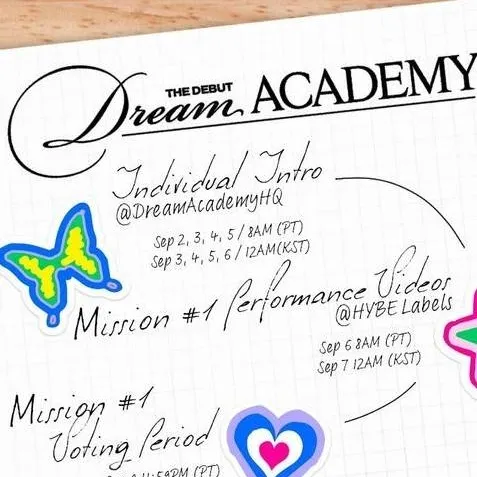 THE DEBUT
Dream ACADEMY
Individual Intro
@DreamAcademyHQ
Sep 2, 3, 4, 5 / 8AM (PT)
Sep 3, 4, 5, 6 / 12AM(KST)
Mission #1 Performance Videos
@HYBE Labels
Sep 6 8AM (PT)
Sep 7 12AM (KST)
Mission #1
Voting Period
(PT)